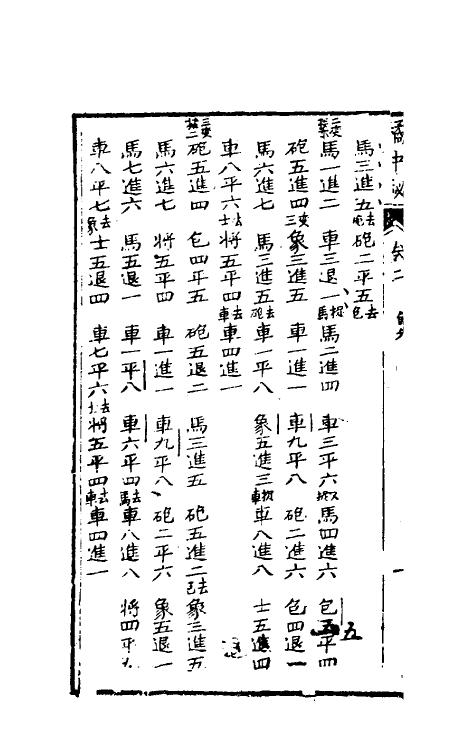 橘中秘 卷二
馬三進五去包 砲二平五去包
三變 馬一進二 車三退一捉馬 馬二進四 車三平六 馬四進六 包五平四
砲五進四三變 象三進五 車一進一 車九平八 砲二進六 包四退一
馬六進七 馬三進五去砲 車一平八 象五進三捉車 車八進八 士五進四
車八平六去士 將五平四去車 車四進一
三變 砲五進四 包四平五 砲五退二 馬三進五 砲五進二去包 象三進五
馬六進七 將五平四 車一進一 車九平八 砲二平六 象五退一
馬七進六 馬五退一 車一平八 車六平四去馬 車八進八 將四平
車八平七去象 士五退四 車七平六去士 將五平四去車 車四進一
五